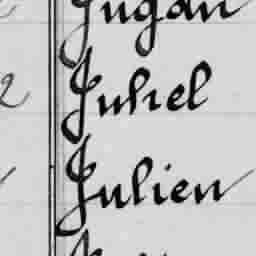 Jugan
2 Juhel
Julien